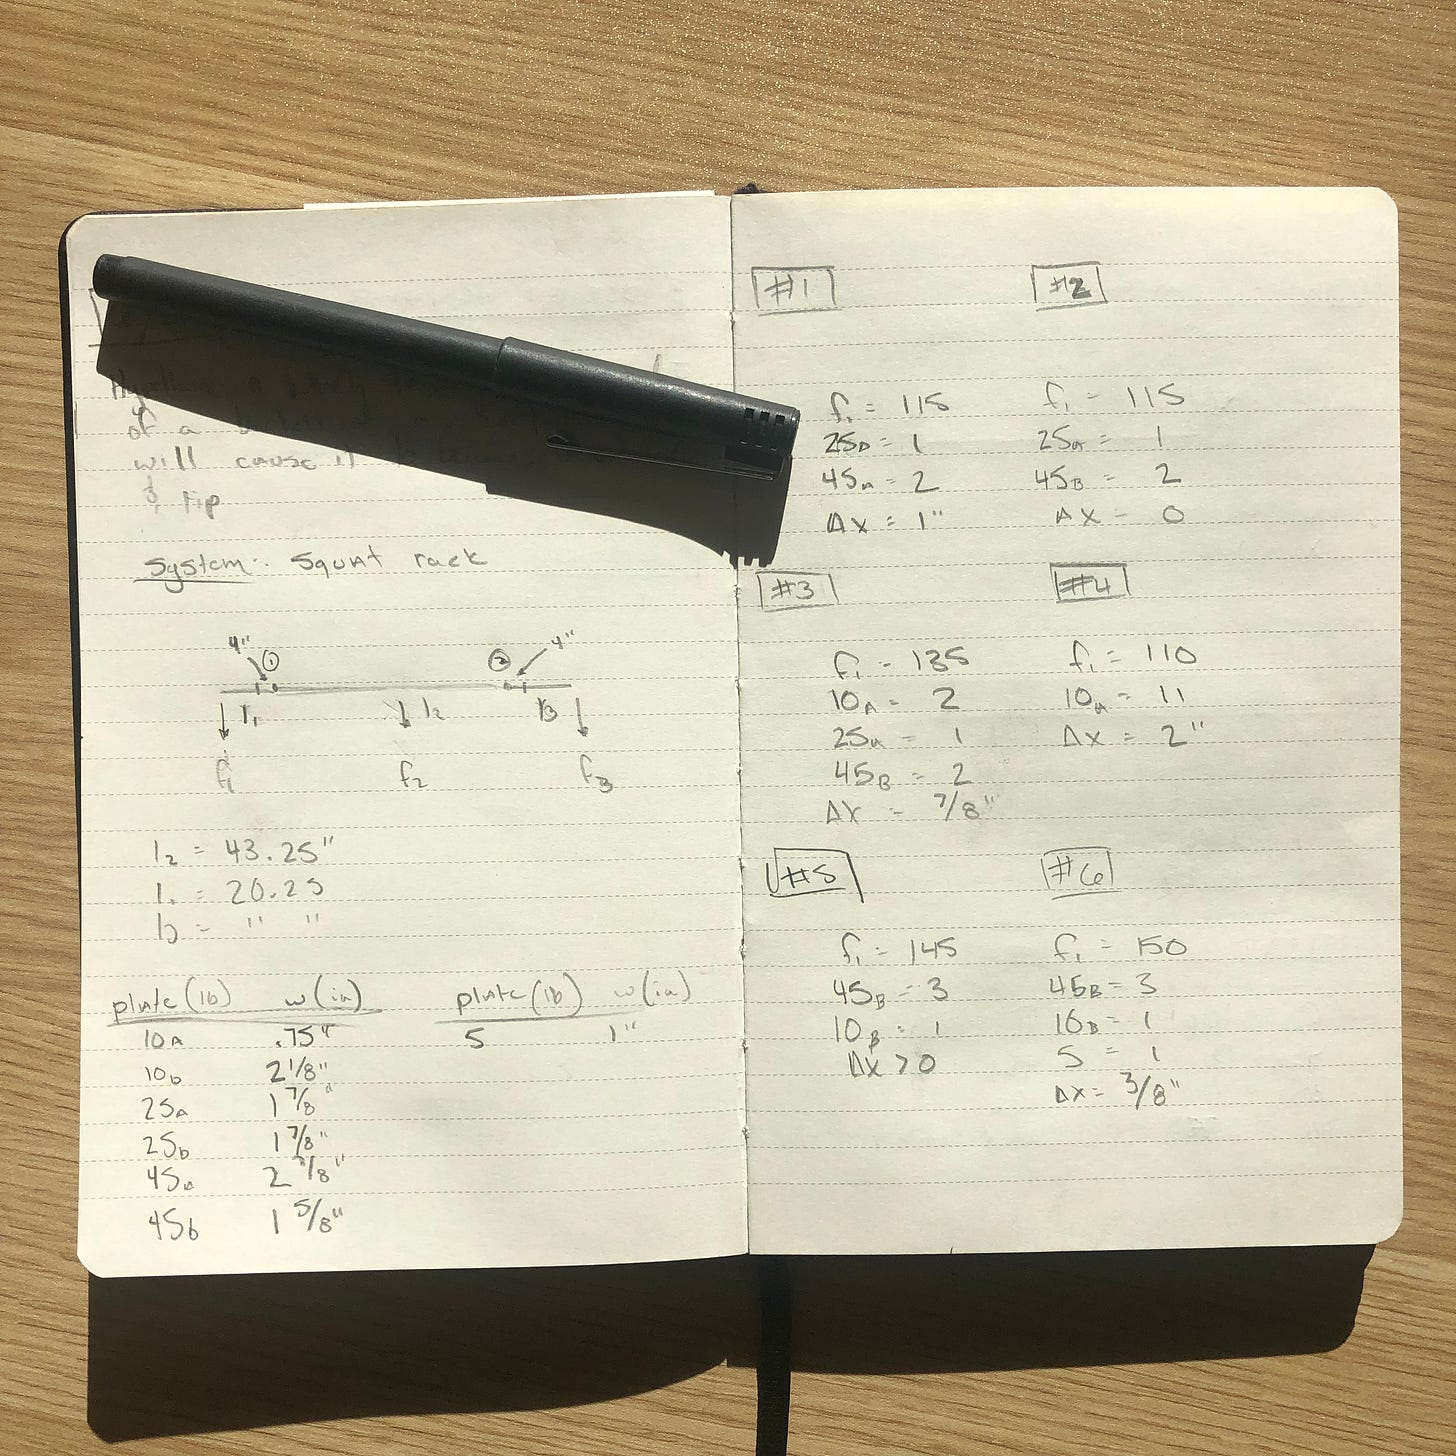 of a
will cause it
& tip
System: Squat rack
4" ① ② 4"
l₁ l₂ l₃
f₁ f₂ f₃
l₂ = 43.25"
l₁ = 20.25
l₃ = " "
plate (lb) w(in) plate (lb) w(in)
10A .75" 5 1"
10b 2 1/8"
25A 1 7/8"
25b 1 7/8"
45A 2 3/8"
45b 1 5/8"
#1
f₁ = 115
25B = 1
45A = 2
Δx = 1"
#2
f₁ = 115
25A = 1
45B = 2
Δx = 0
#3
f₁ = 135
10A = 2
25A = 1
45B = 2
Δx = 7/8"
#4
f₁ = 110
10A = 11
Δx = 2"
#5
f₁ = 145
45B = 3
10B = 1
Δx > 0
#6
f₁ = 150
45B = 3
10B = 1
5 = 1
Δx = 3/8"